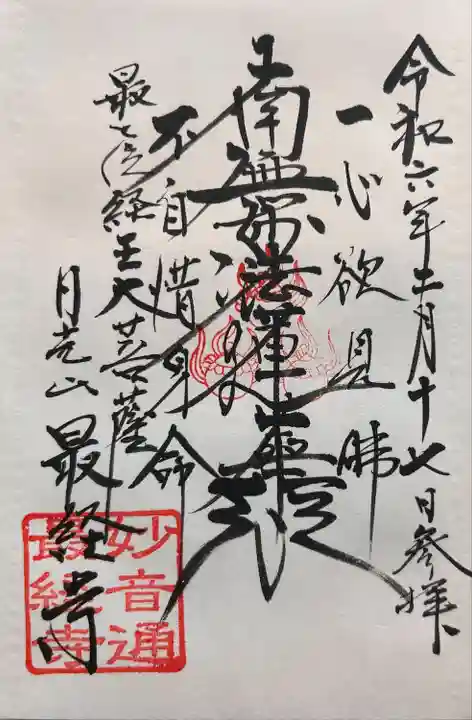 令和六年二月十七日参拝
一心欲見佛
南無妙法蓮華経
不自惜身命
最上位経王大菩薩
月光山 最経寺
妙音通
最経寺